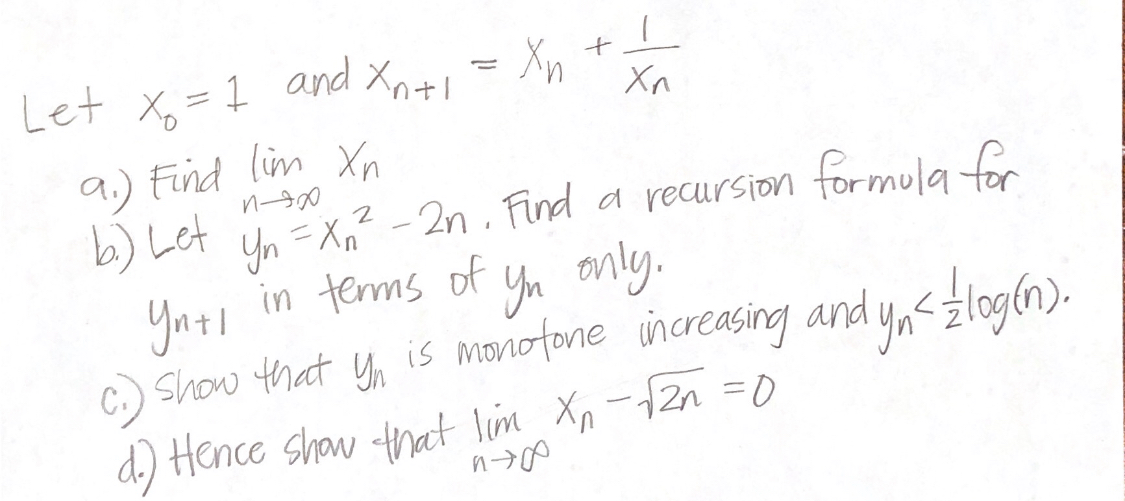 Let x₀ = 1 and xₙ₊₁ = xₙ + 1/xₙ
a.) Find lim n→∞ xₙ
b.) Let yₙ = xₙ² - 2n. Find a recursion formula for
yₙ₊₁ in terms of yₙ only.
c.) Show that yₙ is monotone increasing and yₙ < 1/2 log(n).
d.) Hence show that lim n→∞ xₙ - √2n = 0